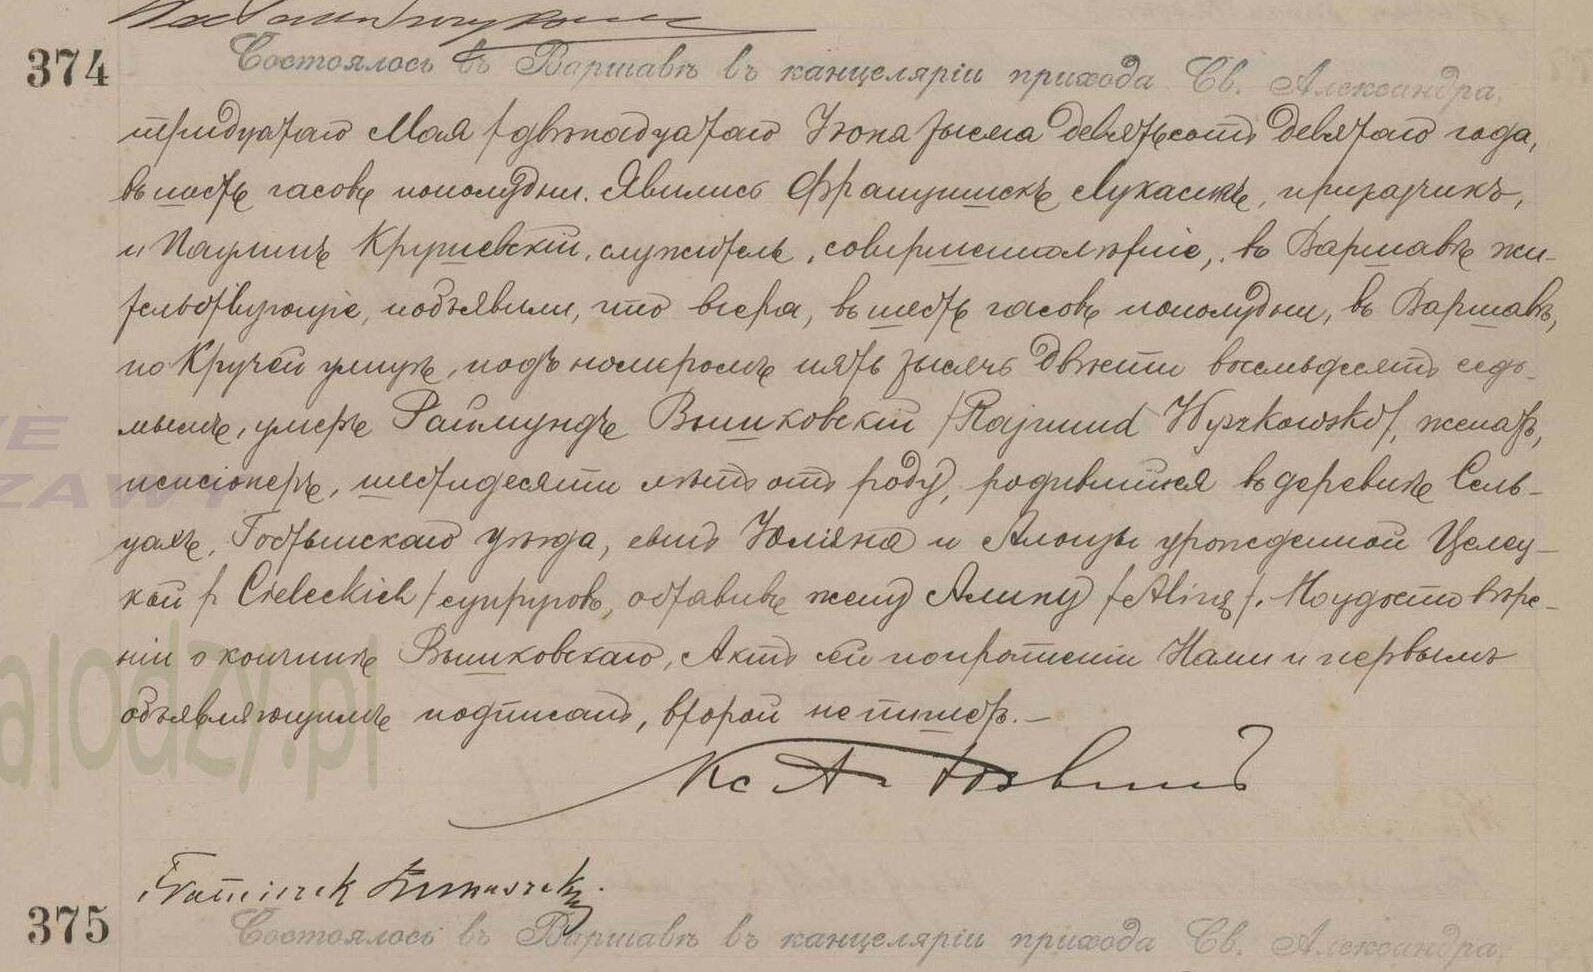 374
Состоялось въ Варшавѣ въ канцеляріи прихода Св. Александра,
тридцатаго Мая / двѣнадцатаго Іюня тысяча девятьсотъ девятаго года,
въ шесть часовъ пополудни. Явились Францишекъ Лукасикъ, приказчикъ,
и Паулинъ Крушевскій, служитель, совершеннолѣтніе, въ Варшавѣ жи-
тельствующіе, и объявили, что вчера, въ шесть часовъ пополудни, въ Варшавѣ,
по Кручей улицѣ, подъ номеромъ пять тысячъ двѣсти восемьдесятъ седь-
мымъ, умеръ Раймундъ Вышковскій / Rajmund Wyszkowski /, женатъ,
пенсіонеръ, шестидесяти лѣтъ отъ роду, родившійся въ деревнѣ Сель-
цахъ, Гостынскаго уѣзда, сынъ Юліяна и Алоизы урожденной Целец-
кой / z Cieleckich / супруговъ, оставивъ жену Алину / Alinę /. По удостовѣре-
ніи о кончинѣ Вышковскаго, Актъ сей по прочтеніи Нами и первымъ
объявляющимъ подписанъ, второй не пишетъ. —
Кс А.
Franciszek
375
Состоялось въ Варшавѣ въ канцеляріи прихода Св. Александра,
alodzy.pl